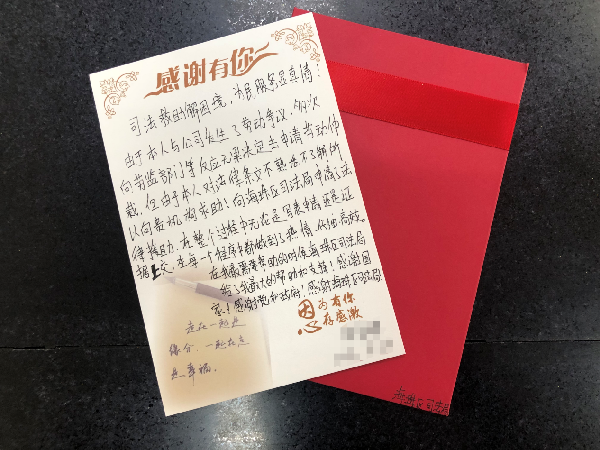 感谢有你
司法救助解困境，为民服务显真情！
由于本人与公司发生了劳动争议，多次
向劳监部门等反应无果决定去申请劳动仲
裁，但由于本人对法律条文不熟悉不了解所
以向贵机构求助，向海珠区司法局申请了法
律援助，在整个过程中无论是写表申请还是证
据上交，在每一个程序中都做到了热情、仔细、高效。
在我最需要帮助的时候海珠区司法局
给了我最大的帮助和支持！感谢国
家！感谢党和政府！感谢海珠区司法局
因为有你
心存感激
走在一起是
缘分，一起在走
是幸福。
海珠区司法局